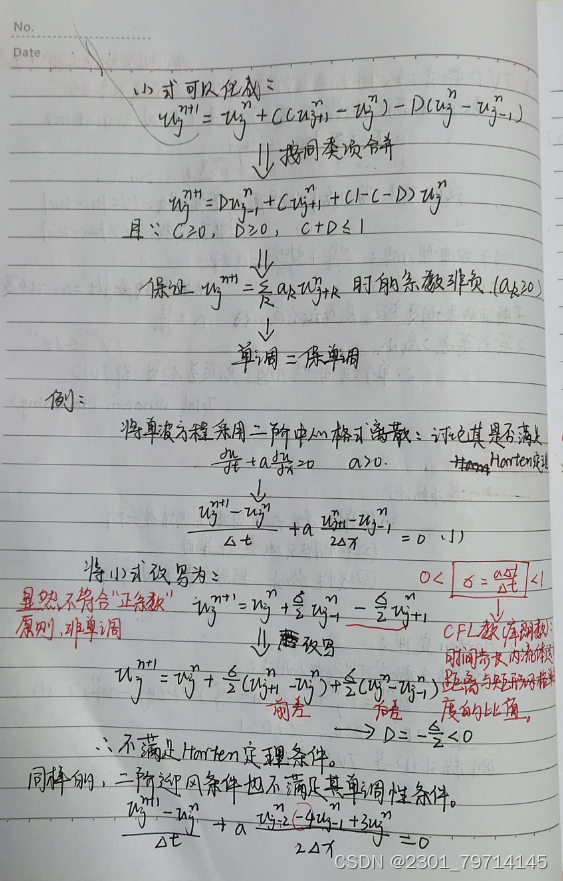 No.
Date
(1)式可以化成:
u_j^{n+1} = u_j^n + C(u_{j+1}^n - u_j^n) - D(u_j^n - u_{j-1}^n)
⇓ 按同类项合并
u_j^{n+1} = Du_{j-1}^n + Cu_{j+1}^n + (1-C-D)u_j^n
且∵ C≥0, D≥0, C+D≤1
⇓
保证 u_j^{n+1} = Σ_k a_k u_{j+k}^n 时的系数非负 (a_k≥0)
↓
单调 = 保单调
例:
将单波方程采用二阶中心格式离散: 讨论其是否满足
∂u/∂t + a ∂u/∂x = 0 a>0. Harten定理
↓
(u_j^{n+1} - u_j^n)/Δt + a (u_{j+1}^n - u_{j-1}^n)/2Δx = 0 (1)
将(1)式改写为:
0 < σ = aΔt/Δt < 1
显然不符合“正系数”
原则, 非单调
u_j^{n+1} = u_j^n + σ/2 u_{j-1}^n - σ/2 u_{j+1}^n
CFL数(库朗数):
时间步长内流体
距离与矩形网格
度的比值。
⇓ 改写
u_j^{n+1} = u_j^n + σ/2 (u_{j+1}^n - u_j^n) + σ/2 (u_j^n - u_{j-1}^n)
前差 后差
→ D = -σ/2 < 0
∴ 不满足Harten定理条件。
同样的, 二阶迎风条件也不满足其单调性条件。
(u_j^{n+1} - u_j^n)/Δt + a (u_{j-2}^n - 4u_{j-1}^n + 3u_j^n)/2Δx = 0
CSDN @2301_79714145